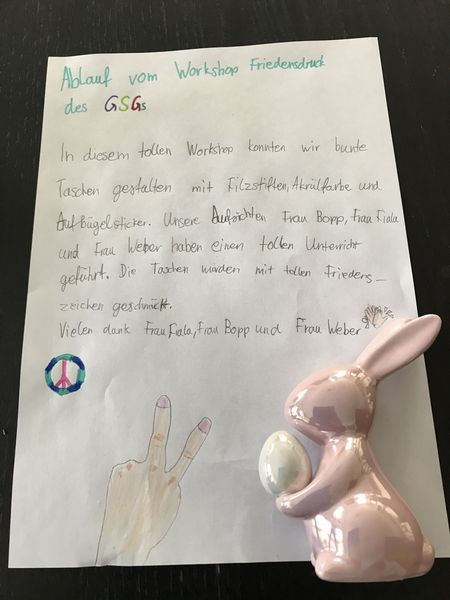 Ablauf vom Workshop Friedensdruck
des GSGs
In diesem tollen Workshop konnten wir bunte
Taschen gestalten mit Filzstiften, Akrülfarbe und
Aufbügelsticker. Unsere Aufsichten Frau Bopp, Frau Fiala
und Frau Weber haben einen tollen Unterricht
geführt. Die Taschen wurden mit tollen Frieders-
zeichen geschmückt.
Vielen dank Frau Fiala, Frau Bopp und Frau Weber